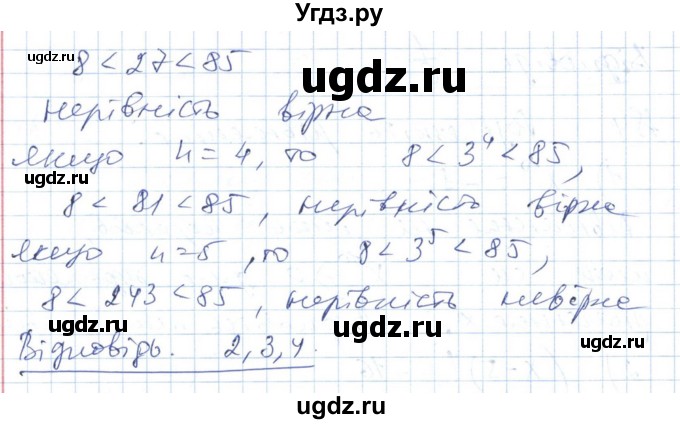 Угдз.ру
8 < 27 < 85
ugdz.ru
ugdz.ru
нерівність вірна
якщо n = 4, то 8 < 3⁴ < 85,
ugdz.ru
ugdz.ru
8 < 81 < 85, нерівність вірна
ugdz.ru
якщо n = 5, то 8 < 3⁵ < 85,
ugdz.ru
8 < 243 < 85, нерівність невірна
ugdz.ru
ugdz.ru
Відповідь. 2, 3, 4.
ugdz.ru
ugdz.ru